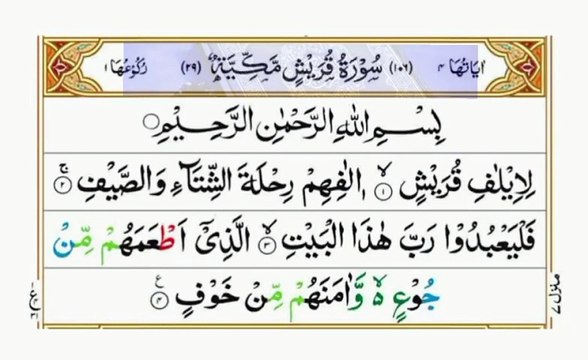 اٰيَاتُهَا ٤ (١٠٦) سُوْرَةُ قُرَيْشٍ مَّكِّيَّةٌ (٢٩) رُكُوْعُهَا ١
بِسْمِ اللّٰهِ الرَّحْمٰنِ الرَّحِيْمِ
لِاِيْلٰفِ قُرَيْشٍ ۙ‏ ﴿۱﴾ اٖلٰفِهِمْ رِحْلَةَ الشِّتَآءِ وَالصَّيْفِ ۚ‏ ﴿۲﴾
فَلْيَعْبُدُوْا رَبَّ هٰذَا الْبَيْتِ ۙ‏ ﴿۳﴾ الَّذِىْٓ اَطْعَمَهُمْ مِّنْ
جُوْعٍ ۙ وَّاٰمَنَهُمْ مِّنْ خَوْفٍ ﴿۴﴾
منزل ٧